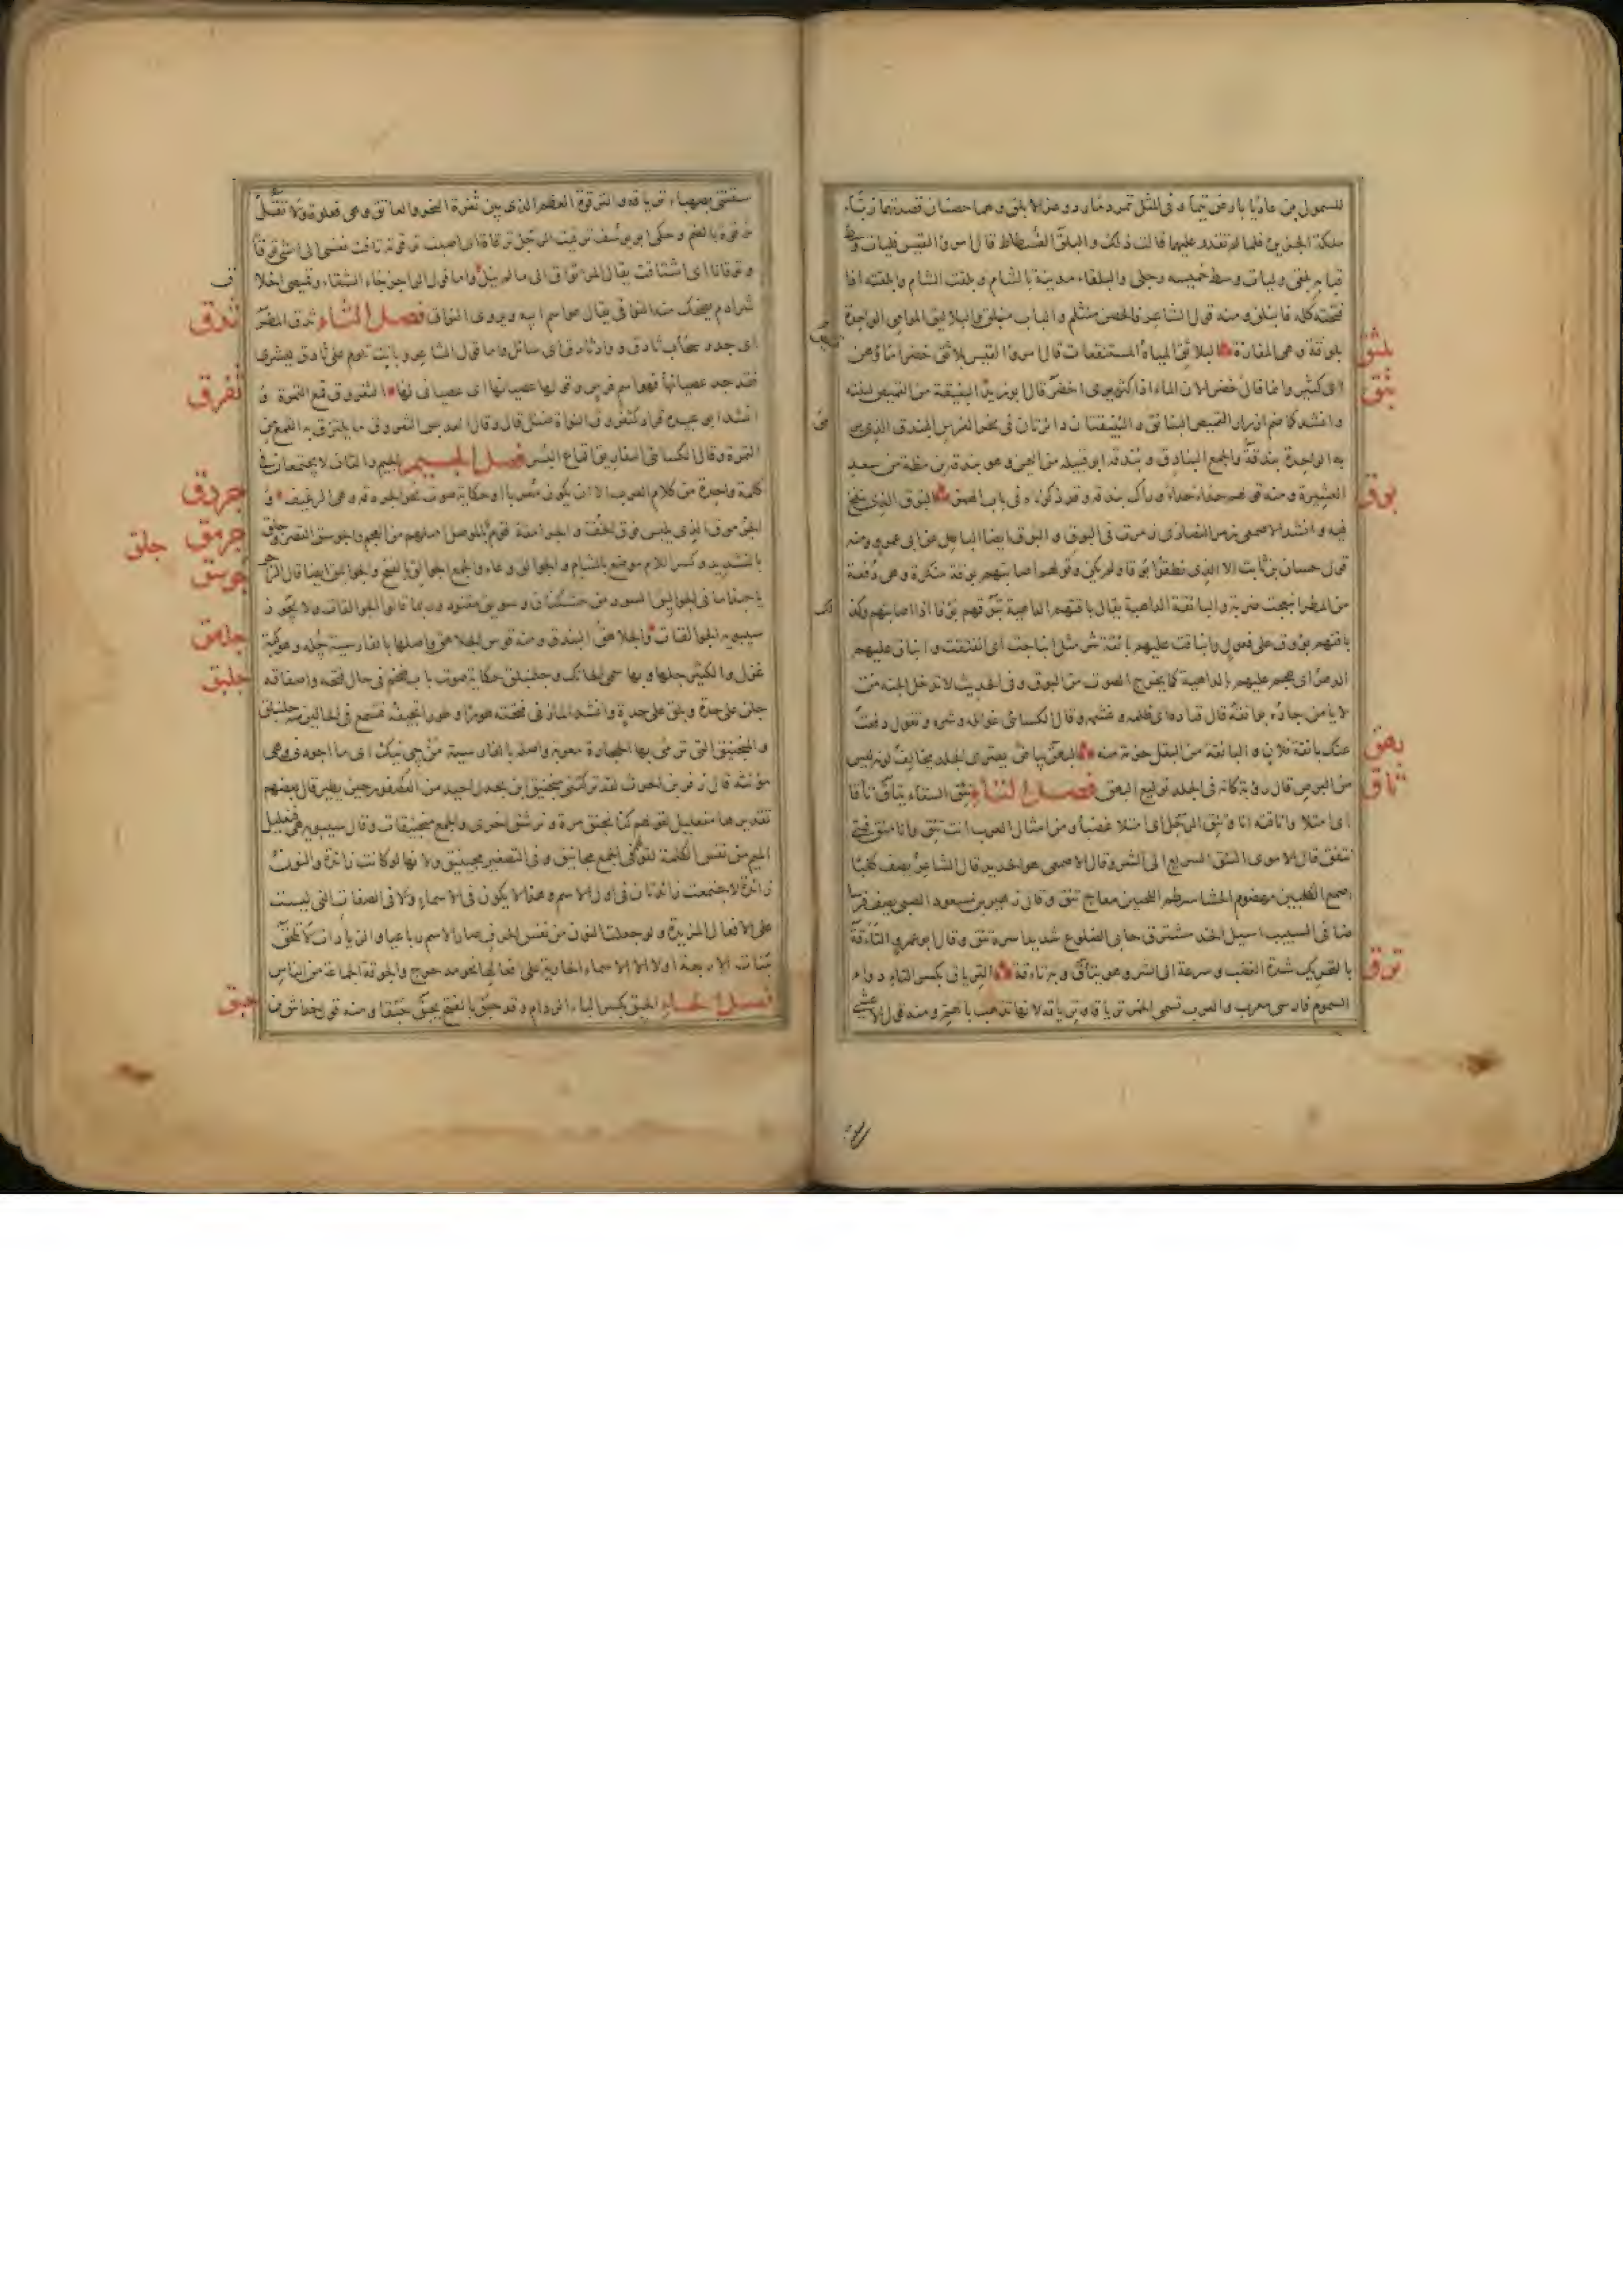 للسموءل بن عاديا بارض تيماء و فى المثل تمرد مارد و عز الابلق و هما حصنان قصدتهما زباء
ملكة الجزيرة فلما لم تقدر عليهما قالت ذلك و البلق الفسطاط قال امرؤ القيس فليات وسط
قبابه بلقى وليات وسط خميسه رجلى والبلقاء مدينة بالشام و بلقت الباب و ابلقته اذا
فتحته كله فانبلق و منه قول الشاعر فالحصن منثلم و الباب منبلق و البلاليق الموامى الواحدة
بلوقة و هى المفازة البلاثق المياه المستنقعات قال امرؤ القيس بلاثق خضرا ماؤهن
اى كثير وانما قال خضرا لان الماء اذا كثر يرى اخضر قال ابو زيد البنيقة من القميص لبنته
وانشد كما ضم ازرار القميص البنائق و البنيقتان دائرتان فى نحر الفرس البندق الذى يرمى
به الواحدة بندقة والجمع البنادق و بندقة ابو قبيلة من اليمن و هو بندقة بن مظة من سعد
العشيرة و منه قولهم حدأ حدأ وراءك بندقة و قد ذكرناه فى باب الهمز البوق الذى ينفخ
فيه و انشد الاصمعى زمر النصارى زمرت فى البوق و البوق ايضا الباطل عن ابى عمرو ومنه
قول حسان بن ثابت الا الذى نطقوا بوقا ولم يكن وقولهم اصابتهم بوقة منكرة و هى دفعة
من المطر انبعجت ضربة والبائقة الداهية يقال باقتهم الداهية تبوقهم بوقا اذا اصابتهم وكذ
باقتهم بؤوق على فعول وانباقت عليهم بائقة شر مثل انباجت اى انفتقت و انباق عليهم
الدهر اى هجم عليهم بالداهية كما يخرج الصوت من البوق و فى الحديث لا يدخل الجنة من
لا يأمن جاره بوائقه قال قتادة اى ظلمه و غشمه وقال الكسائى غوائله و شره و تقول دفعت
عنك بائقة فلان و البائقة من البقل حزمة منه البهق بياض يعترى الجلد يخالف لونه ليس
من البرص قال رؤبة كانه فى الجلد توليع البهق فصل التاء تئق السقاء يتأق تأقا
اى امتلا واتاقته انا و تئق الرجل اى امتلا غضبا و من امثال العرب انت تئق وانا مئق فمتى
نتفق قال الاموى التئق السريع الى الشر وقال الاصمعى هو الحديد قال الشاعر يصف كلبا
اصمع الكعبين مهضوم الحشا سرطم اللحيين معاج تئق وقال زهير بن مسعود الضبى يصف فرسا
ضافى السبيب اسيل الخد مشترف حابى الضلوع شديد اسره تئق وقال ابو عمرو التأقة
بالتحريك شدة الغضب و سرعة الى الشر و هو يتأق و به تأقة الترياق بكسر التاء دواء
السموم فارسى معرب والعرب تسمى الخمر ترياقا و ترياقة لانها تذهب بالهم و منه قول الاعشى
بلثق
بنق
بوق
بهق
تاق
ترق
سقتنى بصهباء ترياقة والترقوة العظم الذى بين ثغرة النحر والعاتق و هى فعلوة ولا تقل
ترقوة بالضم و حكى ابو يوسف ترقيت الرجل ترقاة اى اصبت ترقوته تاقت نفسى الى الشئ توقا
و توقانا اى اشتاقت يقال المرء تواق الى ما لم ينل واما قول الراجز جاء الشتاء وقميصى اخلاق
شراذم يضحك منه التواق يقال هو اسم ابنه و يروى النواق فصل الثاء ثدق المطر
اى جد و سحاب ثادق و واد ثادق اى سائل واما قول الشاعر و باتت تلوم على ثادق ليشرى
فقد جد عصيانها فهو اسم فرس و قولها عصيانها اى عصيانى لها الثفروق قمع التمرة و
انشد ابو عبيد قراد كثفروق النواة ضئيل قال وقال العدبس الثفروق ما يلتزق به القمع من
التمرة وقال الكسائى الثفاريق اقماع البسر فصل الجيم الجيم والقاف لا يجتمعان فى
كلمة واحدة من كلام العرب الا ان يكون معربا او حكاية صوت نحو الجردقة و هى الرغيف و
الجرموق الذى يلبس فوق الخف و الجرامقة قوم بالموصل اصلهم من العجم والجوسق القصر وجلق
بالتشديد و كسر اللام موضع بالشام و الجوالق وعاء والجمع الجوالق بالفتح والجواليق ايضا قال الراجز
يا حبذا ما فى الجواليق السود من خشكنان و سويق مقنود و ربما قالوا الجوالقات ولا يجوز
سيبويه الجوالقات والجلاهق البندق و منه قوس الجلاهق واصلها بالفارسية جله و هو كبة
غزل والكثير جلها و بها سمى الحائك و جلنبلق حكاية صوت باب ضخم فى حال فتحه واصفاقه
جلن على حدة و بلق على حدة وانشد المازنى فتفتحه طورا و طورا تجيفه فتسمع فى الحالين منه جلنبلق
والمنجنيق التى ترمى بها الحجارة معربة واصله بالفارسية من جى نيك اى ما اجودنى و هى
مؤنثة قال زفر بن الحرث لقد تركتنى منجنيق ابن بحدل احيد من العصفور حين يطير قال بعضهم
تقديرها منفعيل لقولهم كنا نجنق مرة و نرشق اخرى والجمع منجنيقات وقال سيبويه هى فنعليل
الميم من نفس الكلمة لقولهم فى الجمع مجانيق و فى التصغير مجينيق ولانها لو كانت زائدة والنون
زائدة لاجتمعت زائدتان فى اول الاسم و هذا لا يكون فى الاسماء ولا فى الصفات التى ليست
على الافعال المزيدة و لو جعلت النون من نفس الحرف صار الاسم رباعيا والزيادات لا تلحق
بنات الاربعة اولا الا الاسماء الجارية على افعالها نحو مدحرج والجوقة الجماعة من الناس
فصل الحاء الحبق بكسر الباء الردام و قد حبق بالفتح يحبق حبقا و منه قول خداش
ثدق
ثفرق
جردق
جرمق
جلق
جوسق
جلهق
جلبق
حبق